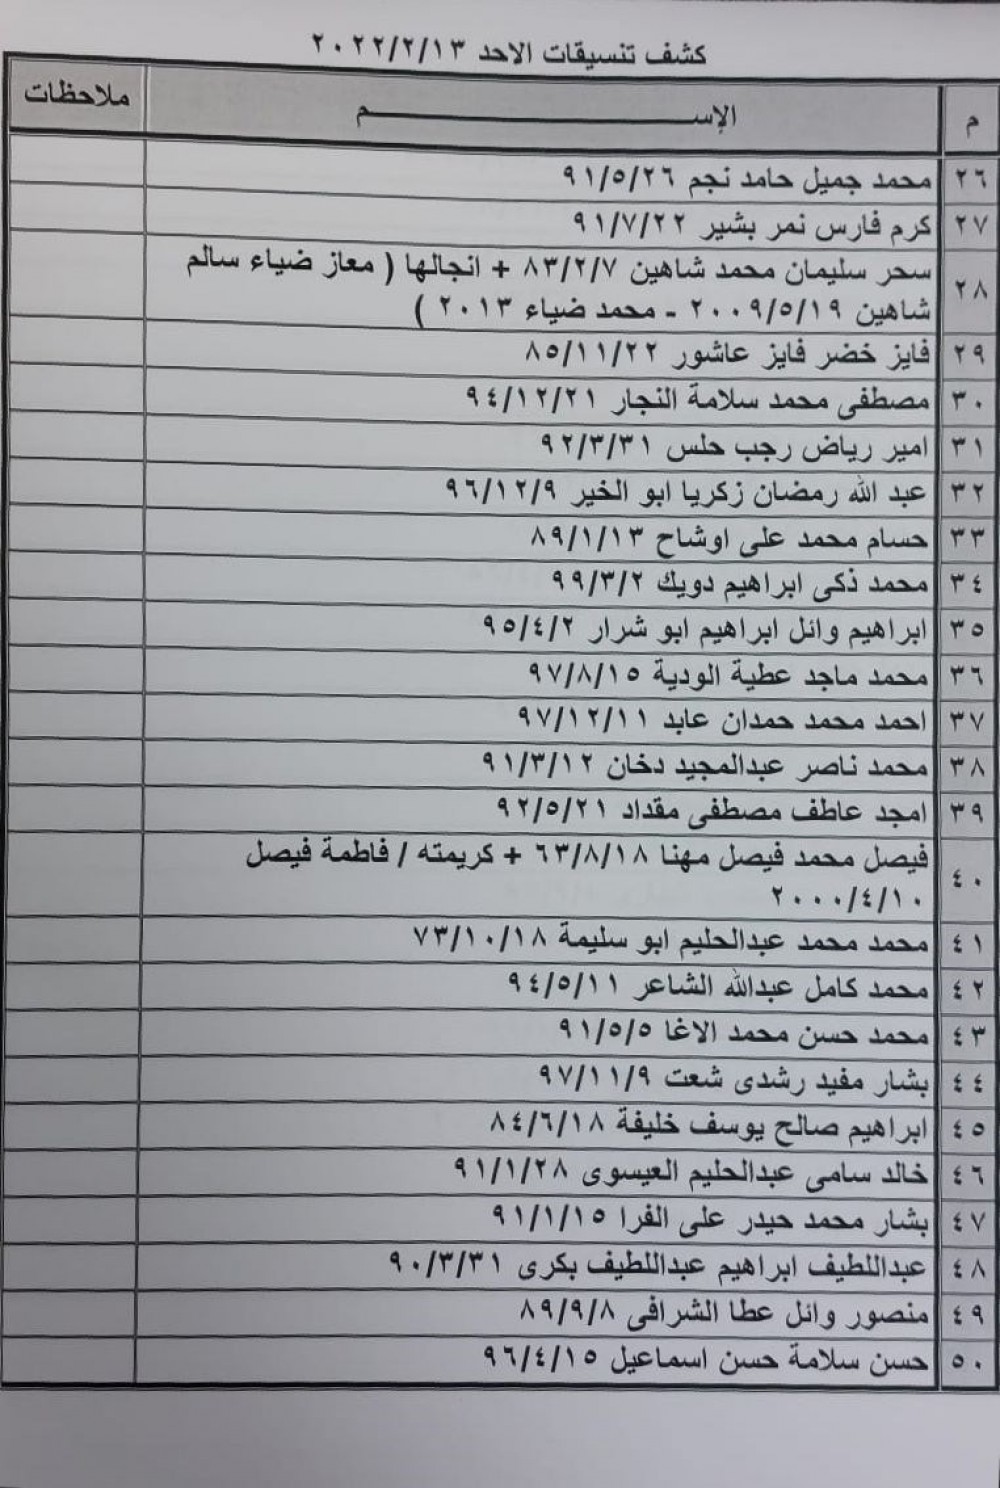 كشف تنسيقات الاحد ٢٠٢٢/٢/١٣
م الإســـم ملاحظات
٢٦ محمد جميل حامد نجم ٩١/٥/٢٦
٢٧ كرم فارس نمر بشير ٩١/٧/٢٢
٢٨ سحر سليمان محمد شاهين ٨٣/٢/٧ + انجالها ( معاز ضياء سالم
شاهين ٢٠٠٩/٥/١٩ - محمد ضياء ٢٠١٣ )
٢٩ فايز خضر فايز عاشور ٨٥/١١/٢٢
٣٠ مصطفى محمد سلامة النجار ٩٤/١٢/٢١
٣١ امير رياض رجب حلس ٩٢/٣/٣١
٣٢ عبد الله رمضان زكريا ابو الخير ٩٦/١٢/٩
٣٣ حسام محمد على اوشاح ٨٩/١/١٣
٣٤ محمد ذكى ابراهيم دويك ٩٩/٣/٢
٣٥ ابراهيم وائل ابراهيم ابو شرار ٩٥/٤/٢
٣٦ محمد ماجد عطية الودية ٩٧/٨/١٥
٣٧ احمد محمد حمدان عابد ٩٧/١٢/١١
٣٨ محمد ناصر عبدالمجيد دخان ٩١/٣/١٢
٣٩ امجد عاطف مصطفى مقداد ٩٢/٥/٢١
٤٠ فيصل محمد فيصل مهنا ٦٣/٨/١٨ + كريمته / فاطمة فيصل
٢٠٠٠/٤/١٠
٤١ محمد محمد عبدالحليم ابو سليمة ٧٣/١٠/١٨
٤٢ محمد كامل عبدالله الشاعر ٩٤/٥/١١
٤٣ محمد حسن محمد الاغا ٩١/٥/٥
٤٤ بشار مفيد رشدى شعت ٩٧/١١/٩
٤٥ ابراهيم صالح يوسف خليفة ٨٤/٦/١٨
٤٦ خالد سامى عبدالحليم العيسوى ٩١/١/٢٨
٤٧ بشار محمد حيدر على الفرا ٩١/١/١٥
٤٨ عبداللطيف ابراهيم عبداللطيف بكرى ٩٠/٣/٣١
٤٩ منصور وائل عطا الشرافى ٨٩/٩/٨
٥٠ حسن سلامة حسن اسماعيل ٩٦/٤/١٥